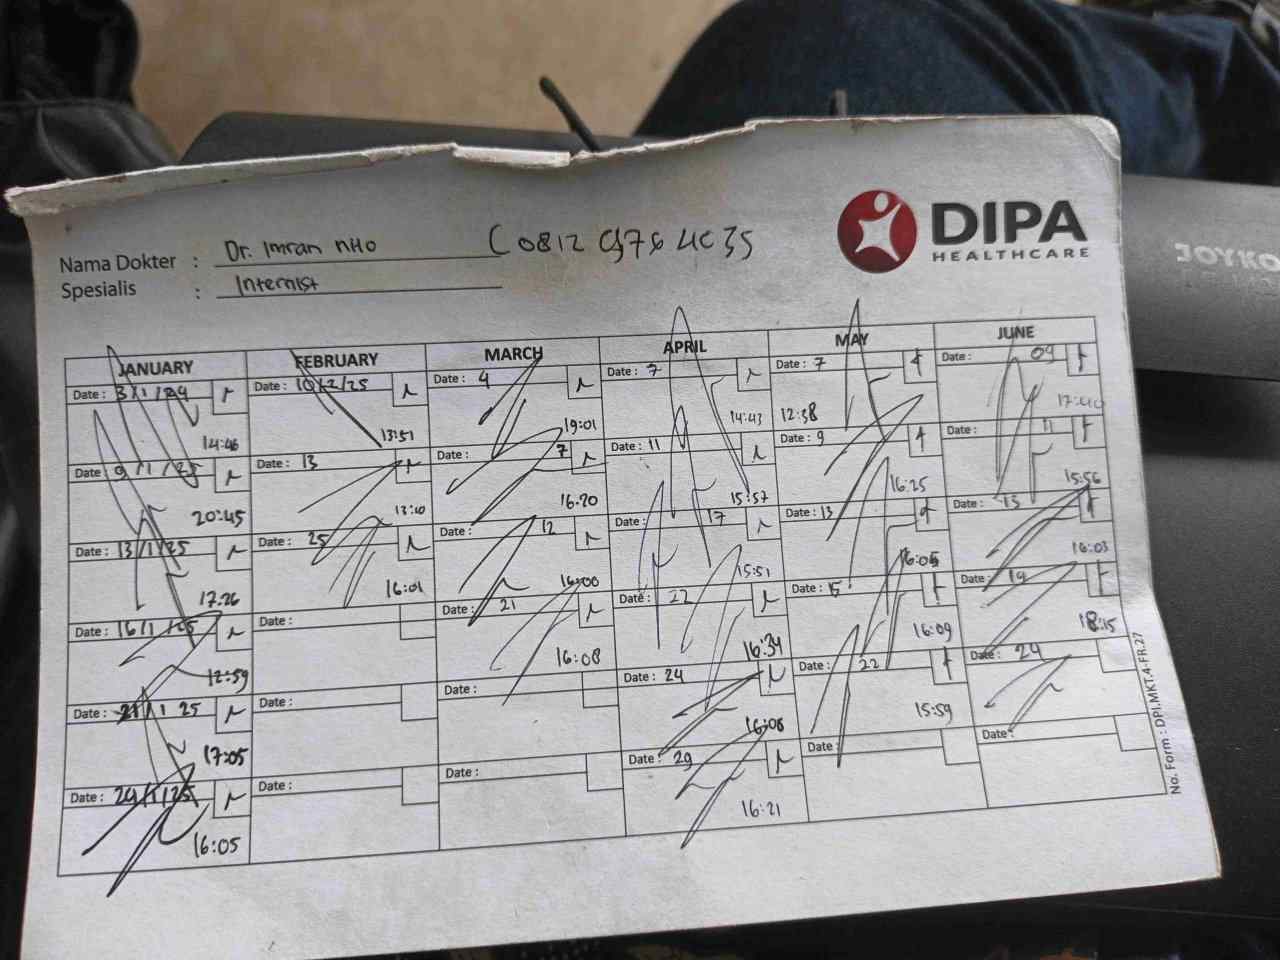 DIPA
HEALTHCARE
JOYKO
Nama Dokter : Dr. Imran nHo
Spesialis : Internist
JANUARY FEBRUARY MARCH APRIL MAY JUNE
Date : 3/1/ Date : 10/2/25 Date : 4 Date : 7 Date : 7 Date : 09
14:46 13:51 19:01 14:43 12:38 17:40
Date : 9/1/25 Date : 13 Date : 7 Date : 11 Date : 9 Date : 11
20:45 13:10 16.20 15:57 16:25 15:56
Date : 13/1/25 Date : 25 Date : 12 Date : 17 Date : 13 Date : 13
17.26 16:01 16:00 15:51 16:05 16:03
Date : 16/1/25 Date : Date : 21 Date : 22 Date : 15 Date : 19
12:59 16:08 16:34 16:09 18:15
Date : 21/1 25 Date : Date : Date : 24 Date : 22 Date : 24
17:05 16:08 15:59
Date : /1/25 Date : Date : Date : 29 Date : Date :
16:05 16:21
No. Form : DPI.MKT.4-FR.27